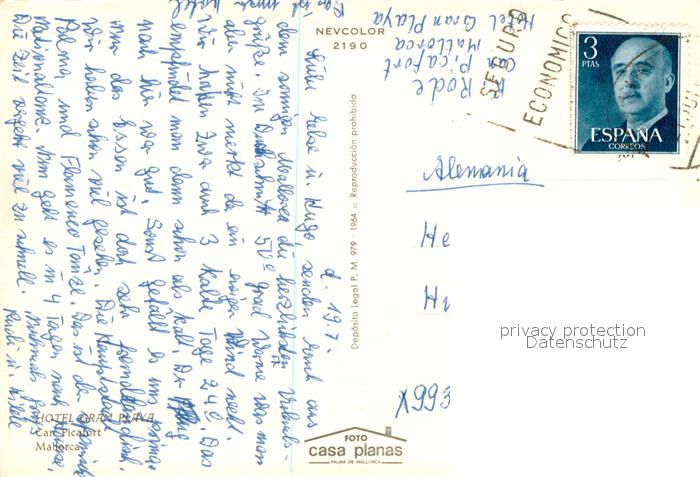 NEVCOLOR
2190
R. Rode
Ca'n Picafort
Mallorca
Hotel Gran Playa
SEGURO
ECONOMICO
3
PTAS
ESPAÑA
CORREOS
Alemania
He
privacy protection
Datenschutz
d. 19.7.
Liebe Else u. Hugo senden Euch aus
dem sonnigen Mallorca die herzlichsten Urlaubs-
grüße. Im Durchschnitt 50° grad Wärme was man
aber nicht merkt da ein ewiger Wind weht.
Wir hatten zwar auch 3 kalte Tage 24°. Das
empfindet man dann schon als kalt. Der Flug
nach hier war gut. Sonst gefällt es uns prima.
nur das Essen ist doch sehr fremdländisch.
Wir haben schon viel gesehen. Die Hauptstadt
Palma und Flamenco Tänze. Das ist der spanische
Nationaltanz. Nun geht es in 4 Tagen nach Hause.
Die Zeit vergeht viel zu schnell. Nochmals Gruß
Das ist unser Hotel
Depósito Legal P. M. 979 - 1964 :: Reproducción prohibida
HOTEL GRAN PLAYA
Can Picafort
Mallorca
FOTO
casa planas
PALMA DE MALLORCA